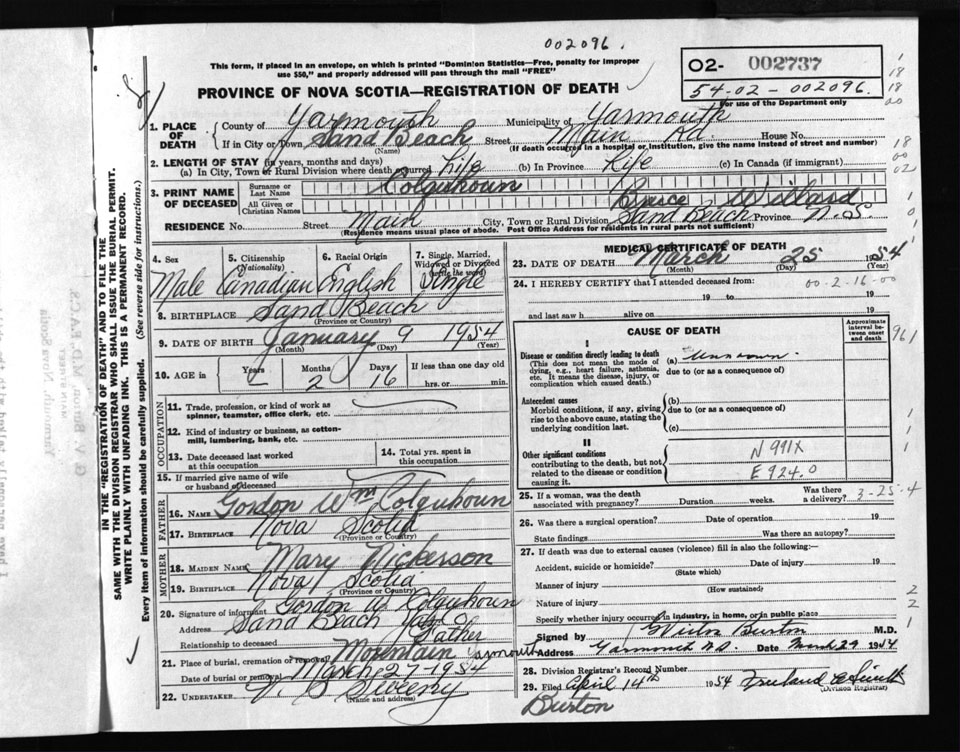 002096.
This form, if placed in an envelope, on which is printed "Dominion Statistics—Free, penalty for improper
use $50," and properly addressed will pass through the mail "FREE"
O2- 002737
54-02-002096.
For use of the Department only
PROVINCE OF NOVA SCOTIA—REGISTRATION OF DEATH
1. PLACE OF DEATH { County of Yarmouth Municipality of Yarmouth
If in City or Town Sand Beach (Name) Street Main Rd. House No.
(If death occurred in a hospital or institution, give the name instead of street and number)
2. LENGTH OF STAY (in years, months and days)
(a) In City, Town or Rural Division where death occurred Life (b) In Province Life (c) In Canada (if immigrant)
3. PRINT NAME OF DECEASED { Surname or Last Name Colquhoun
All Given or Christian Names Bruce Willard
RESIDENCE No. Street Main City, Town or Rural Division Sand Beach Province N.S.
(Residence means usual place of abode. Post Office Address for residents in rural parts not sufficient)
4. Sex 5. Citizenship (Nationality) 6. Racial Origin 7. Single, Married, Widowed or Divorced (write the word)
Male Canadian English Single
8. BIRTHPLACE Sand Beach
(Province or Country)
9. DATE OF BIRTH January 9 1954
(Month) (Day) (Year)
10. AGE in Years Months Days If less than one day old
2 16 hrs. or min.
OCCUPATION
11. Trade, profession, or kind of work as spinner, teamster, office clerk, etc.
12. Kind of industry or business, as cotton-mill, lumbering, bank, etc.
13. Date deceased last worked at this occupation 14. Total yrs. spent in this occupation
15. If married give name of wife or husband of deceased
FATHER
16. NAME Gordon Wm Colquhoun
17. BIRTHPLACE Nova Scotia
(Province or Country)
MOTHER
18. MAIDEN NAME Mary Nickerson
19. BIRTHPLACE Nova Scotia
(Province or Country)
20. Signature of informant Gordon W Colquhoun
Address Sand Beach Yar Co
Relationship to deceased Father
21. Place of burial, cremation or removal Mountain Yarmouth
Date of burial or removal March 27-1954
22. UNDERTAKER V. S Sweeny
(Name and address)
MEDICAL CERTIFICATE OF DEATH
23. DATE OF DEATH March 25 1954
(Month) (Day) (Year)
24. I HEREBY CERTIFY that I attended deceased from: 00-2-16-00
19 to 19
and last saw h alive on 19
CAUSE OF DEATH
Approximate interval between onset and death
I
Disease or condition directly leading to death (a) Unknown.
(This does not mean the mode of dying, e.g., heart failure, asthenia, etc. It means the disease, injury, or complication which caused death.)
due to (or as a consequence of)
Antecedent causes
Morbid conditions, if any, giving rise to the above cause, stating the underlying condition last.
(b)
due to (or as a consequence of)
(c)
II
Other significant conditions
contributing to the death, but not related to the disease or condition causing it.
N 991X
E 924.0
25. If a woman, was the death associated with pregnancy? Duration weeks. Was there a delivery? 3-25-4
26. Was there a surgical operation? Date of operation 19
State findings Was there an autopsy?
27. If death was due to external causes (violence) fill in also the following:—
Accident, suicide or homicide? Date of injury 19
(State which)
Manner of injury
(How sustained)
Nature of injury
Specify whether injury occurred in industry, in home, or in public place
Signed by G Victor Burton M.D.
Address Yarmouth N.S. Date March 29 1954
28. Division Registrar's Record Number
29. Filed April 14th 1954
(Division Registrar)
Burton
IN THE "REGISTRATION OF DEATH" AND TO FILE THE
SAME WITH THE DIVISION REGISTRAR WHO SHALL ISSUE THE BURIAL PERMIT.
WRITE PLAINLY WITH UNFADING INK. THIS IS A PERMANENT RECORD.
Every item of information should be carefully supplied. (See reverse side for instructions.)
G. V. Burton, M.D., F.A.C.S.
MAIN STREET
Yarmouth, Nova Scotia